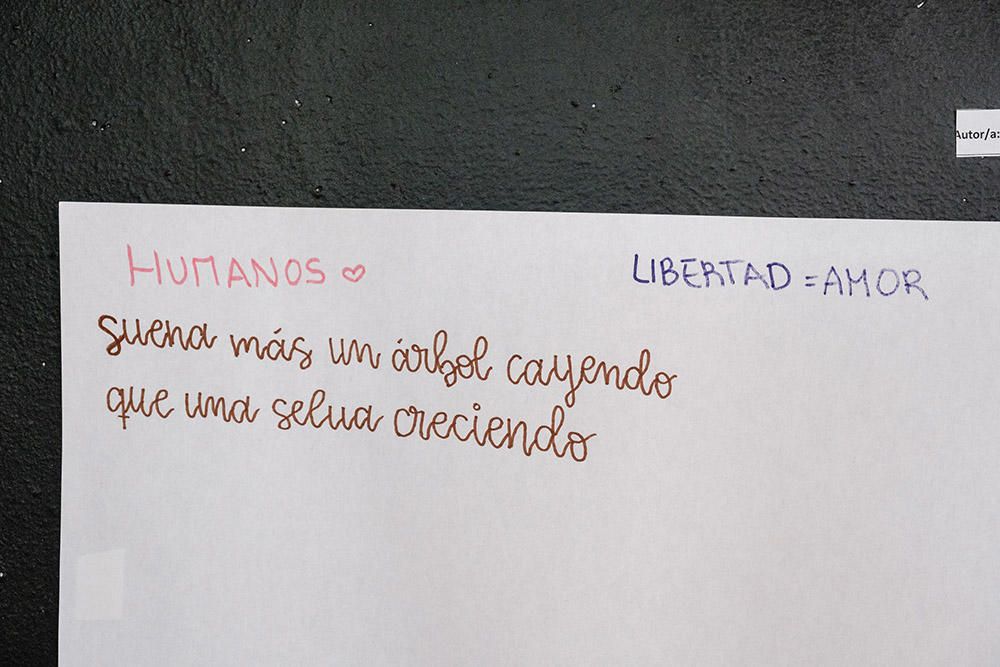 Autor/a:
HUMANOS ♡
LIBERTAD = AMOR
suena más un árbol cayendo
que una selva creciendo